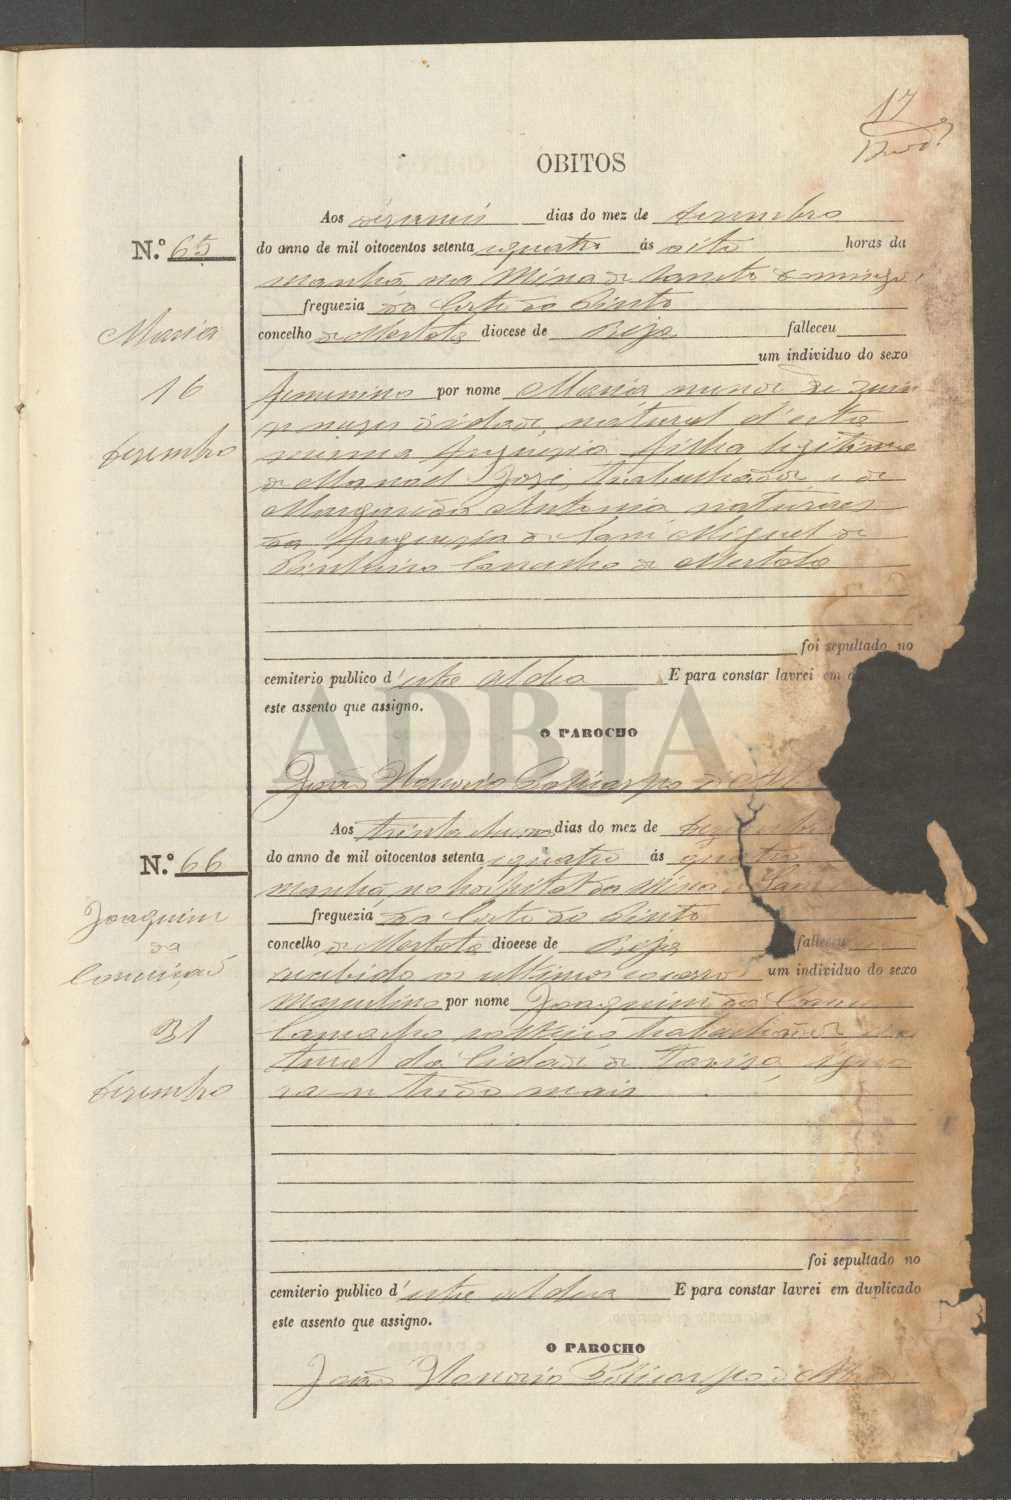 17
OBITOS
Aos dezaseis dias do mez de dezembro
N.º 65
do anno de mil oitocentos setenta e quatro ás oito horas da
manhã na Mina de Sancto Domingos
freguezia da Corte do Pinto
Maria
concelho de Mertola diocese de Beja falleceu
um individuo do sexo
16
femenino por nome Maria menor de
mezes d'idade, natural d'esta
dezembro
mesma freguezia filha legitima
de Manoel José, trabalhador e de
Margarida Antonia naturaes
da freguezia de Sam Miguel de
Pinheiro Concelho de Mertola
foi sepultado no
cemiterio publico d'esta aldea E para constar lavrei em
este assento que assigno.
O PAROCHO
João Honorio Policarpo
ADBJA
Aos trinta hum dias do mez de
N.º 66
do anno de mil oitocentos setenta e quatro ás quatro
manhã, no hospital da Mina
Joaquim
da
Conceição
freguezia da Corte do Pinto
concelho de Mertola diocese de Beja falleceu
recebido os ultimos socorros um individuo do sexo
masculino por nome Joaquim da
31
Camacho solteiro trabalhador
tural da Cidade de Tavira,
dezembro
ra-se tudo mais
foi sepultado no
cemiterio publico d'esta aldea E para constar lavrei em duplicado
este assento que assigno.
O PAROCHO
João Honorio Policarpo